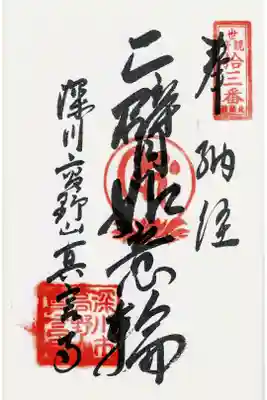 世観
拾三番
奉納経
二臂如意輪
深川高野山真言寺
深川市
高野山